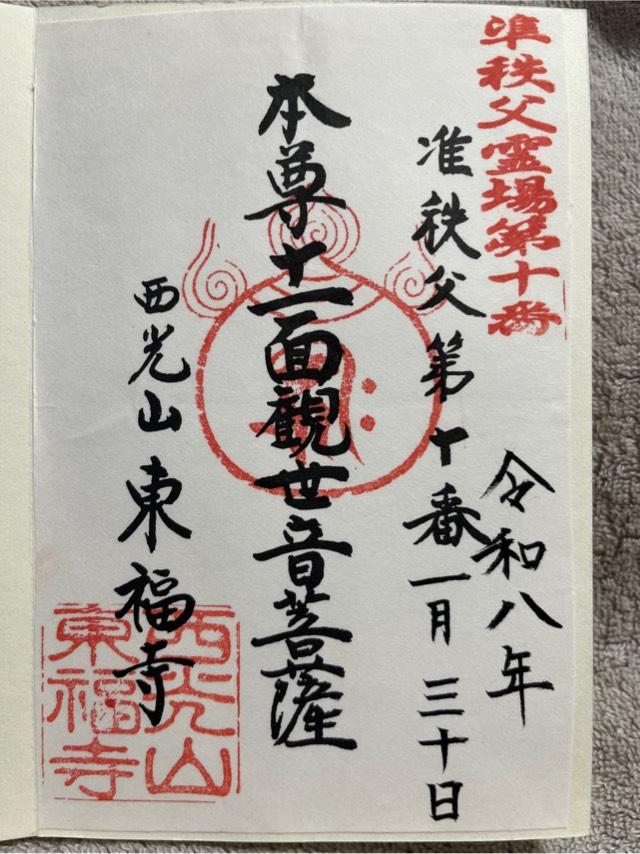 准秩父霊場第十番
令和八年
准秩父第十番一月三十日
本尊十一面観世音菩薩
西光山東福寺
西光山
東福寺